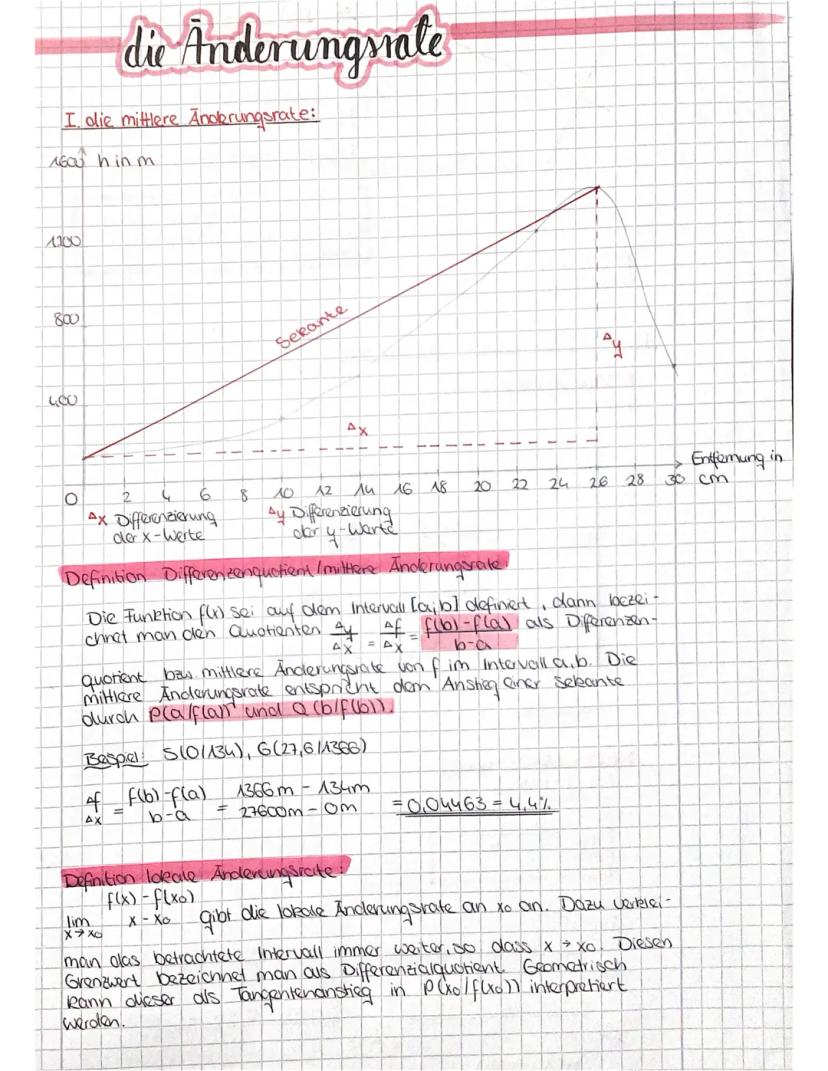 die Änderungsrate
I. die mittlere Änderungsrate:
1600 h in m
1200
800
400
Sekante
Δy
Δx
Entfernung in
cm
0 2 4 6 8 10 12 14 16 18 20 22 24 26 28 30
Δx Differenzierung
der x-Werte
Δy Differenzierung
der y-Werte
Definition Differenzenquotient/mittlere Änderungsrate:
Die Funktion f(x) sei auf dem Intervall [a;b] definiert, dann bezei-
chnet man den Quotienten Δy/Δx = Δf/Δx = f(b)-f(a)/b-a als Differenzen-
quotient bzw. mittlere Änderungsrate von f im Intervall a,b. Die
mittlere Änderungsrate entspricht dem Anstieg einer Sekante
durch P(a/f(a)) und Q(b/f(b)).
Beispiel: S(0/134), G(27,6/1366)
Δf/Δx = f(b)-f(a)/b-a = 1366m - 134m/27600m - 0m = 0,04463 = 4,4%
Definition lokale Änderungsrate:
lim x→x₀ f(x)-f(x₀)/x-x₀ gibt die lokale Änderungsrate an x₀ an. Dazu verklei-
man das betrachtete Intervall immer weiter, so dass x→x₀. Diesen
Grenzwert bezeichnet man als Differenzialquotient. Geometrisch
kann dieser als Tangentenanstieg in P(x₀/f(x₀)) interpretiert
werden.